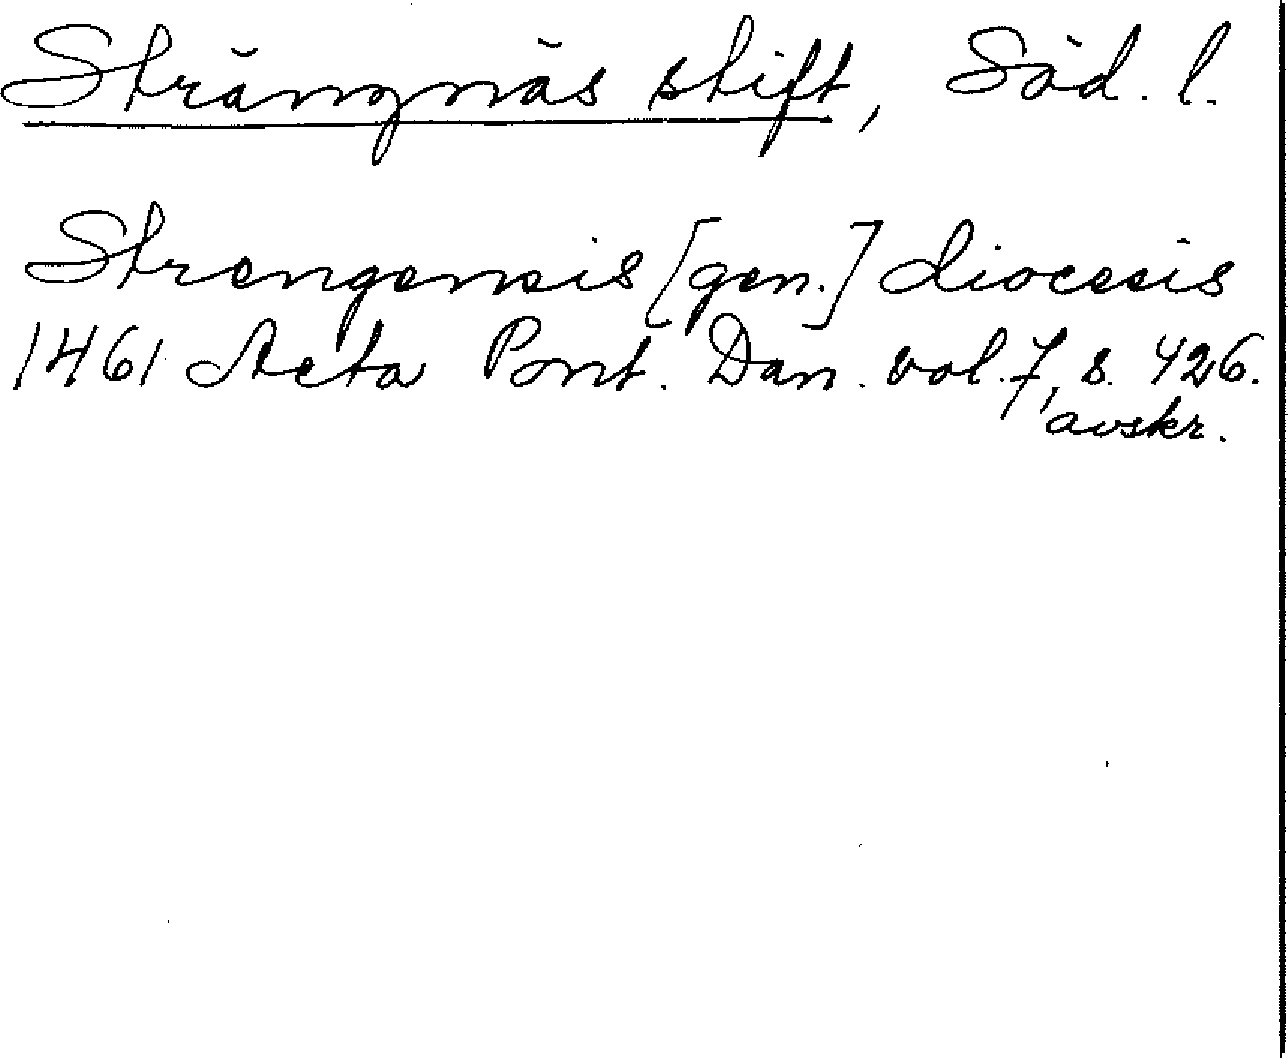 Strängnäs stift, Söd. l.
Strengensis [gen.] diocesis
1461 Acta Pont. Dan. vol. 7, s. 426.
avskr.